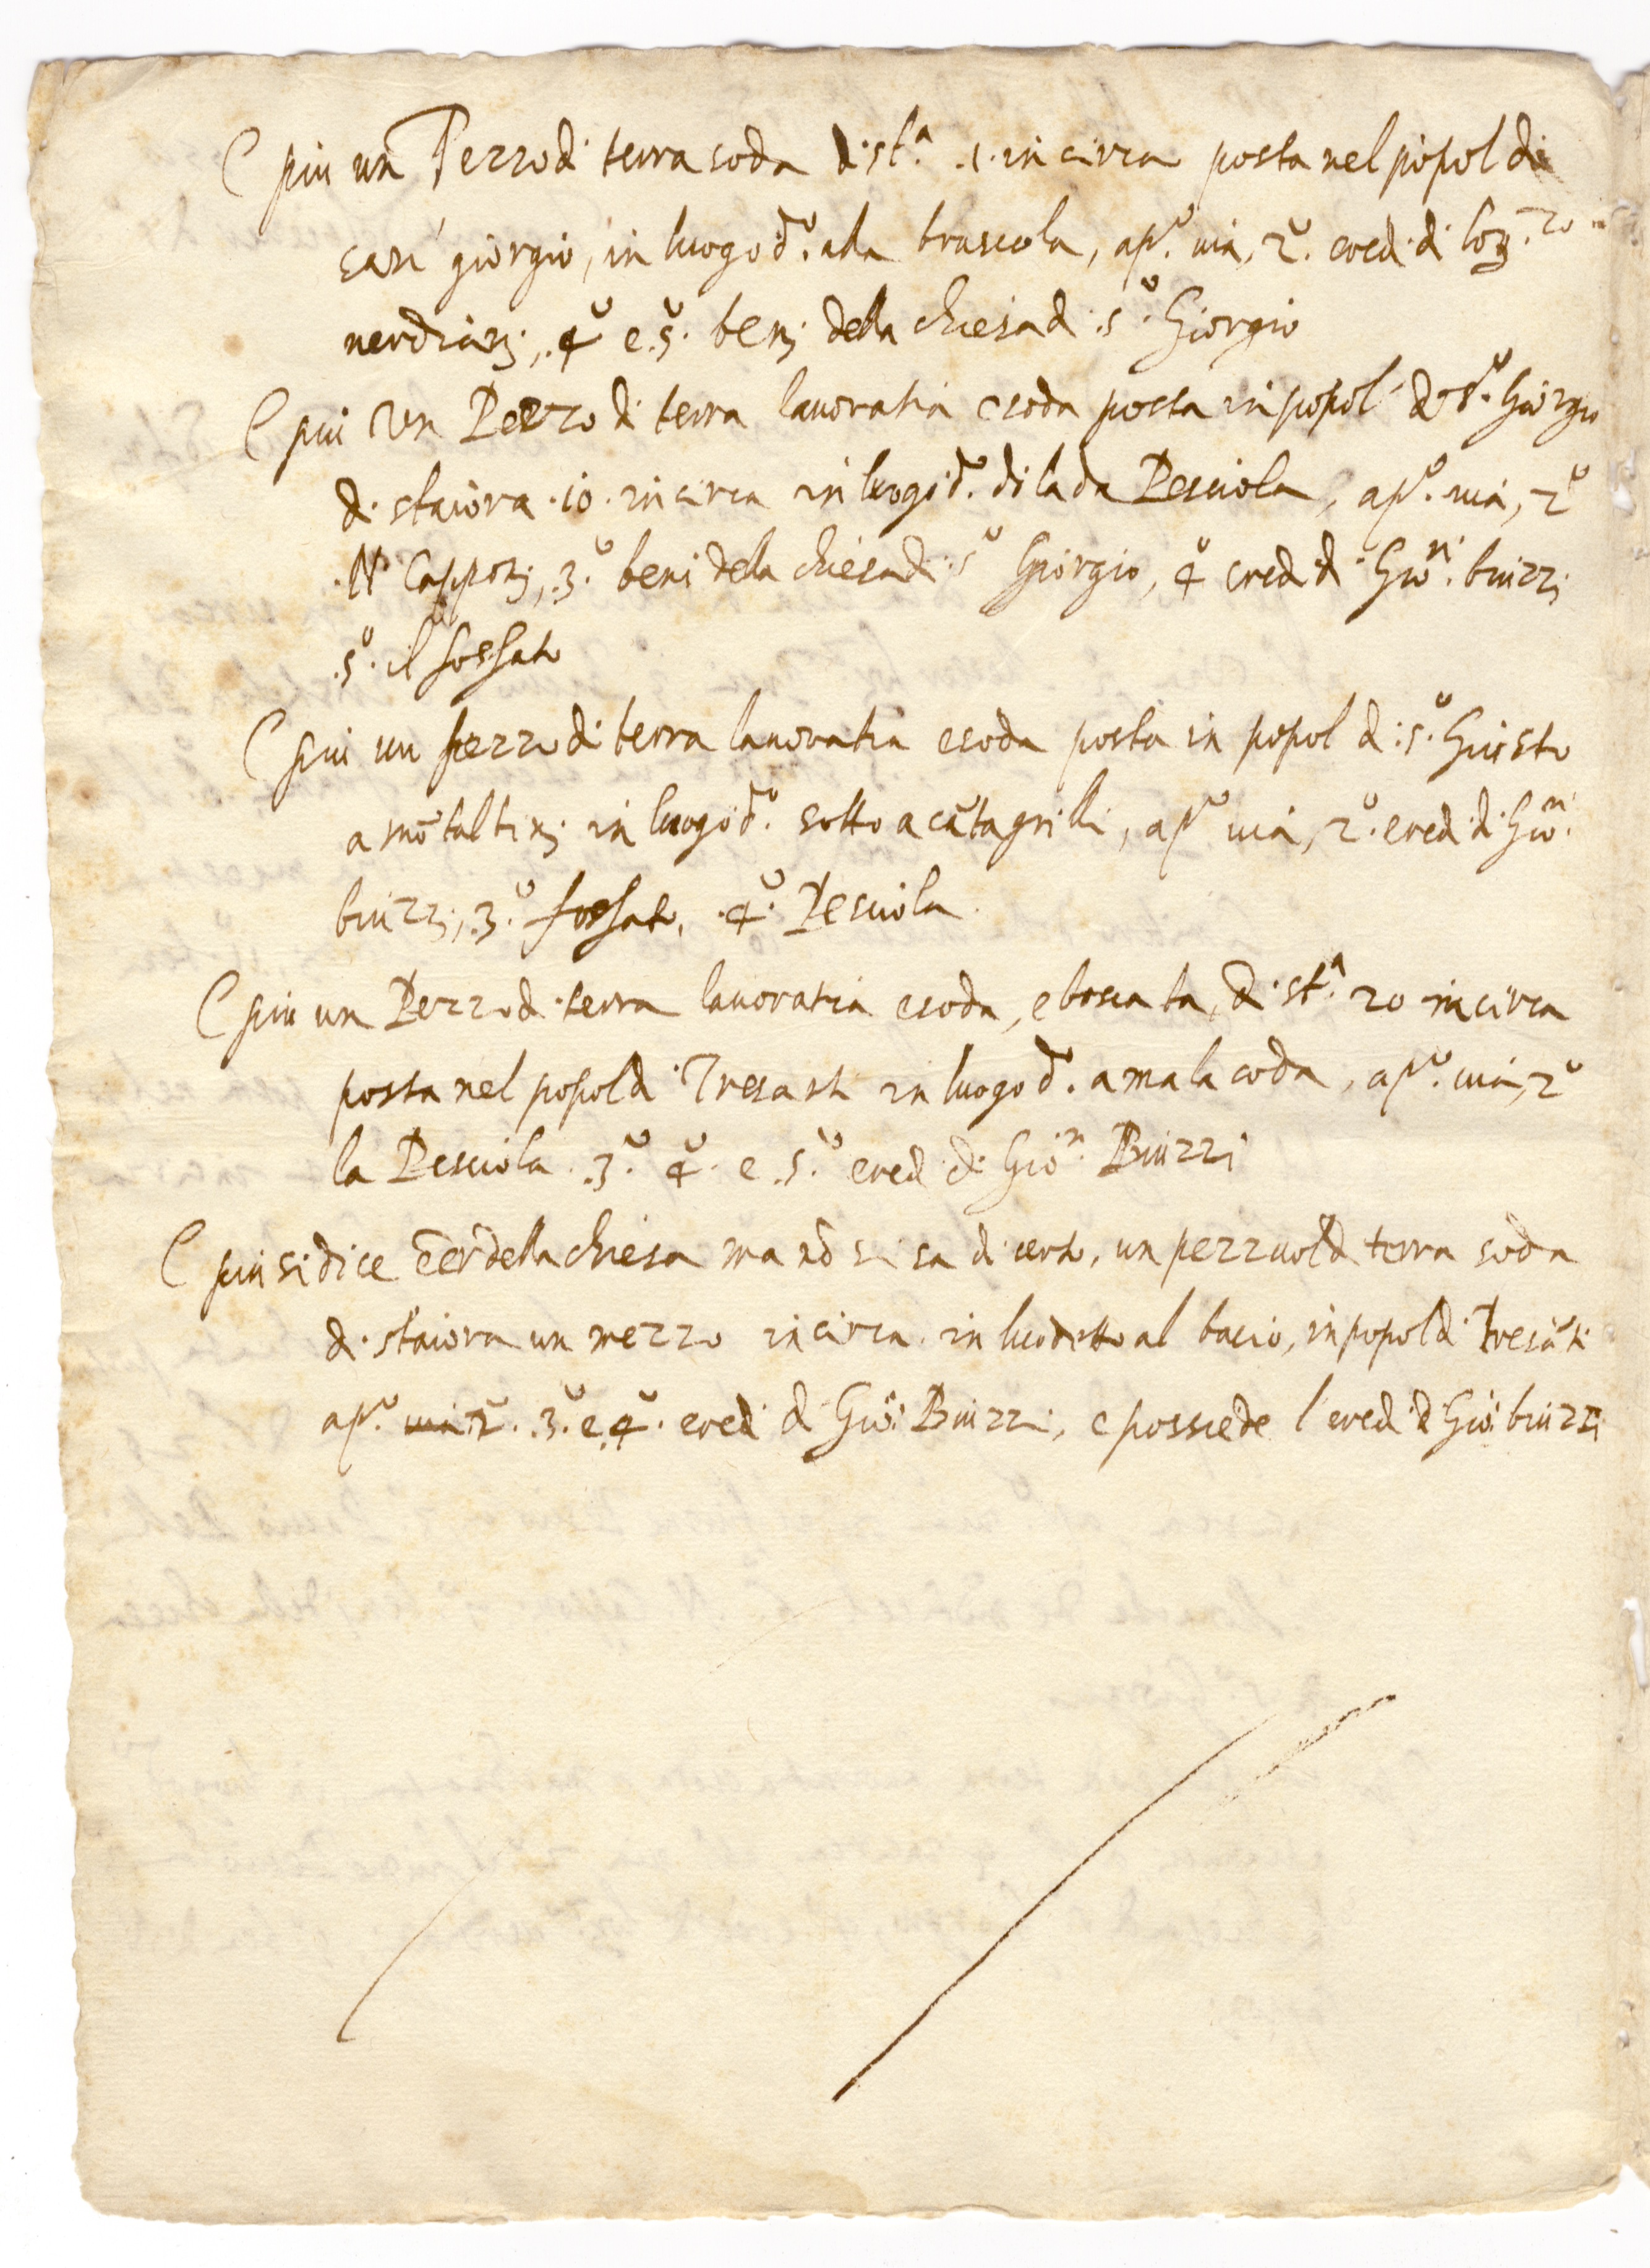 E piu un Pezzo di terra soda di st.ª .1. in circa posta nel popol di
san giorgio, in luogo d.º alla bruscola, ap.º uia, 2º. ered. di lor.zo
nerdianj, .4º e .5º. benj della chiesa di .sº. Giorgio
E piu Un Pezzo di terra lauoratia e soda posta in popol di sº. Giorgio
di staiora .10. in circa in luogo d.º di la da Pesciola, ap.º uia, 2º
.N. Capponj, .3.º beni della chiesa di .sº Giorgio, 4º ered. di Gio.ni buizzi
.5º. il fossato
E piu un pezzo di terra lauoratia e soda posta in popol di .sº. Giusto
a mõtaltinj in luogo d.º sotto a cãtagrilli, ap.º uia, 2º. ered. di Gio.ni
buizzj, .3.º fossato, .4º. Pesciola.
E piu un Pezzo di terra lauoratia e soda, e boscata, di st.ª 20 in circa
posta nel popol di Tresanti in luogo d.º a mala coda, ap.º uia, 2º
la Pesciola .3.º 4º. e .5.º ered. di Gio.n Buizzi
E piu si dice eer della chiesa ma nõ si sa di certo, un pezzuol di terra soda
di staiora un mezzo in circa in luo detto al bacio, in popol di Tresãti
ap.º uia 2º. .3º. e .4º. ered. di Gio: Buizzi, e possiede l'ered. di Gio: buizzi